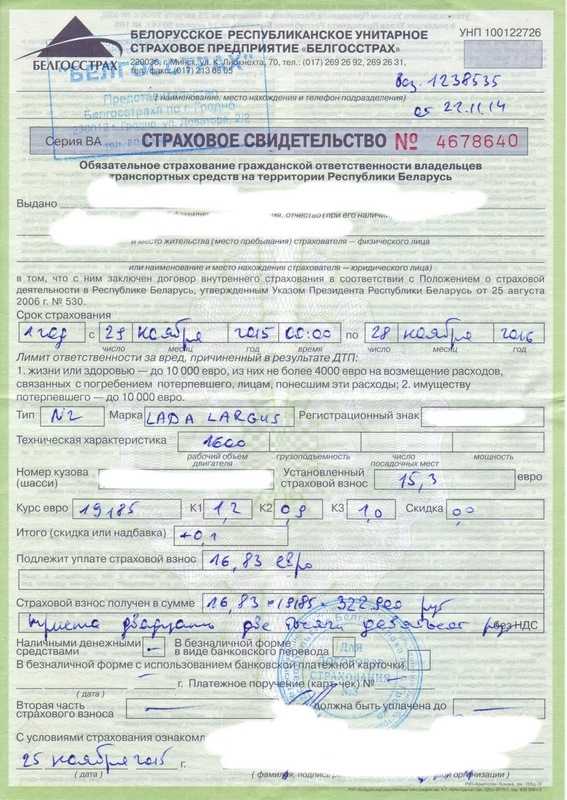 БЕЛГОССТРАХ
БЕЛОРУССКОЕ РЕСПУБЛИКАНСКОЕ УНИТАРНОЕ
СТРАХОВОЕ ПРЕДПРИЯТИЕ «БЕЛГОССТРАХ»
УНП 100122726
220036, г. Минск, ул. К. Либкнехта, 70, тел.: (017) 269 26 92, 269 26 31,
тел/факс: (017) 213 08 05
1238535
(наименование, место нахождения и телефон подразделения)
от 22.11.14
Серия ВА СТРАХОВОЕ СВИДЕТЕЛЬСТВО № 4678640
Обязательное страхование гражданской ответственности владельцев
транспортных средств на территории Республики Беларусь
Выдано
отчество (при его наличии)
и место жительства (место пребывания) страхователя — физического лица
или наименование и место нахождения страхователя — юридического лица)
в том, что с ним заключен договор внутреннего страхования в соответствии с Положением о страховой
деятельности в Республике Беларусь, утвержденным Указом Президента Республики Беларусь от 25 августа
2006 г. № 530.
Срок страхования
1 год с 29 ноября 2015 00:00 по 28 ноября 2016
число месяц год время число месяц год
Лимит ответственности за вред, причиненный в результате ДТП:
1. жизни или здоровью — до 10 000 евро, из них не более 4000 евро на возмещение расходов,
связанных с погребением потерпевшего, лицам, понесшим эти расходы; 2. имуществу
потерпевшего — до 10 000 евро.
Тип N2 Марка LADA LARGUS Регистрационный знак
Техническая характеристика 1600
рабочий объем двигателя грузоподъемность число посадочных мест мощность
Номер кузова (шасси) Установленный страховой взнос 15,3 евро
Курс евро 19185 К1 1,2 К2 0,9 К3 1,0 Скидка 0,0
Итого (скидка или надбавка) +0,1
Подлежит уплате страховой взнос 16,83 евро
Страховой взнос получен в сумме 16,83 × 19185 = 322900 руб
триста двадцать две тысячи девятьсот руб без НДС
Наличными денежными средствами — В безналичной форме в виде банковского перевода
В безналичной форме с использованием банковской платежной карточки
— г. Платежное поручение (карт-чек) № —
(дата)
Вторая часть страхового взноса — должна быть уплачена до —
С условиями страхования ознакомл
25 ноября 2015 г.
(дата)